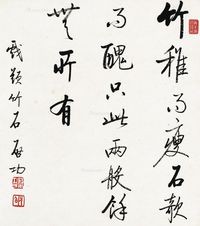 竹稚而瘦石
而醜只此兩般餘
無所有
戲題竹石 启功